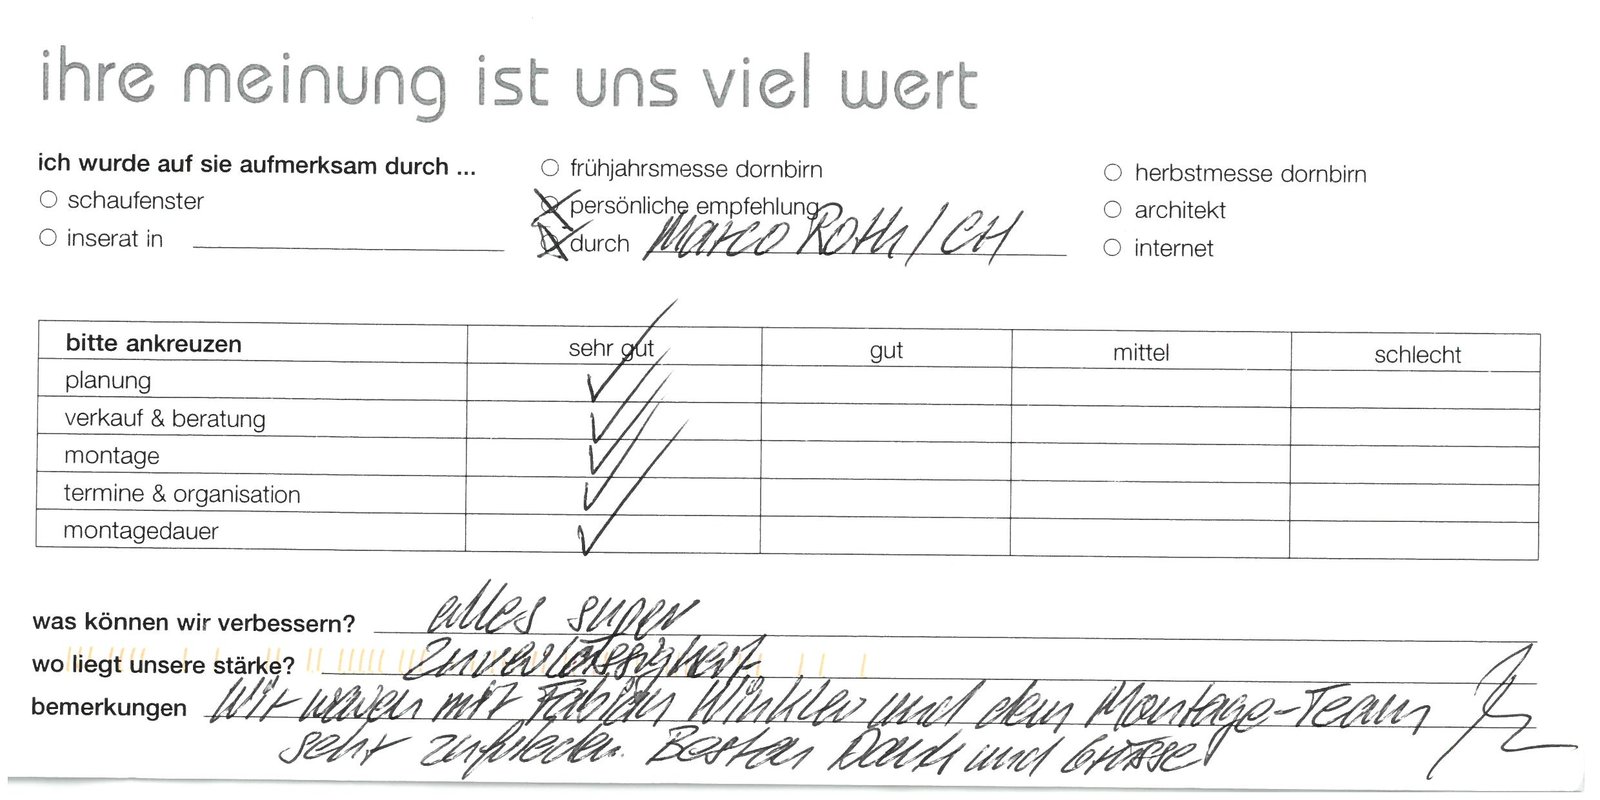 ihre meinung ist uns viel wert
ich wurde auf sie aufmerksam durch ...
schaufenster
inserat in
frühjahrsmesse dornbirn
persönliche empfehlung
durch Marco Roth / CH
herbstmesse dornbirn
architekt
internet
bitte ankreuzen sehr gut gut mittel schlecht
planung ✓
verkauf & beratung ✓
montage ✓
termine & organisation ✓
montagedauer ✓
was können wir verbessern? alles super
wo liegt unsere stärke? Zuverlässigkeit
bemerkungen Wir waren mit Fabian Winkler und dem Montage-Team
sehr zufrieden. Besten Dank und Grüsse